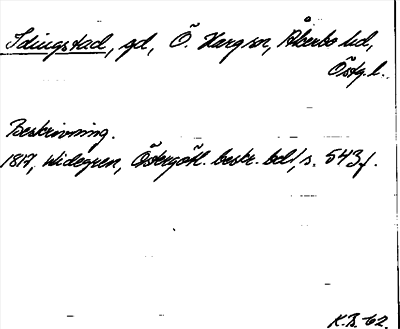 Idingstad, gd, Ö. Harg sn, Åkerbo hd,
Östg. l.
Beskrivning.
1817, Widegren, Östergötl. beskr. bd 1, s. 543 f.
K.B. 62.